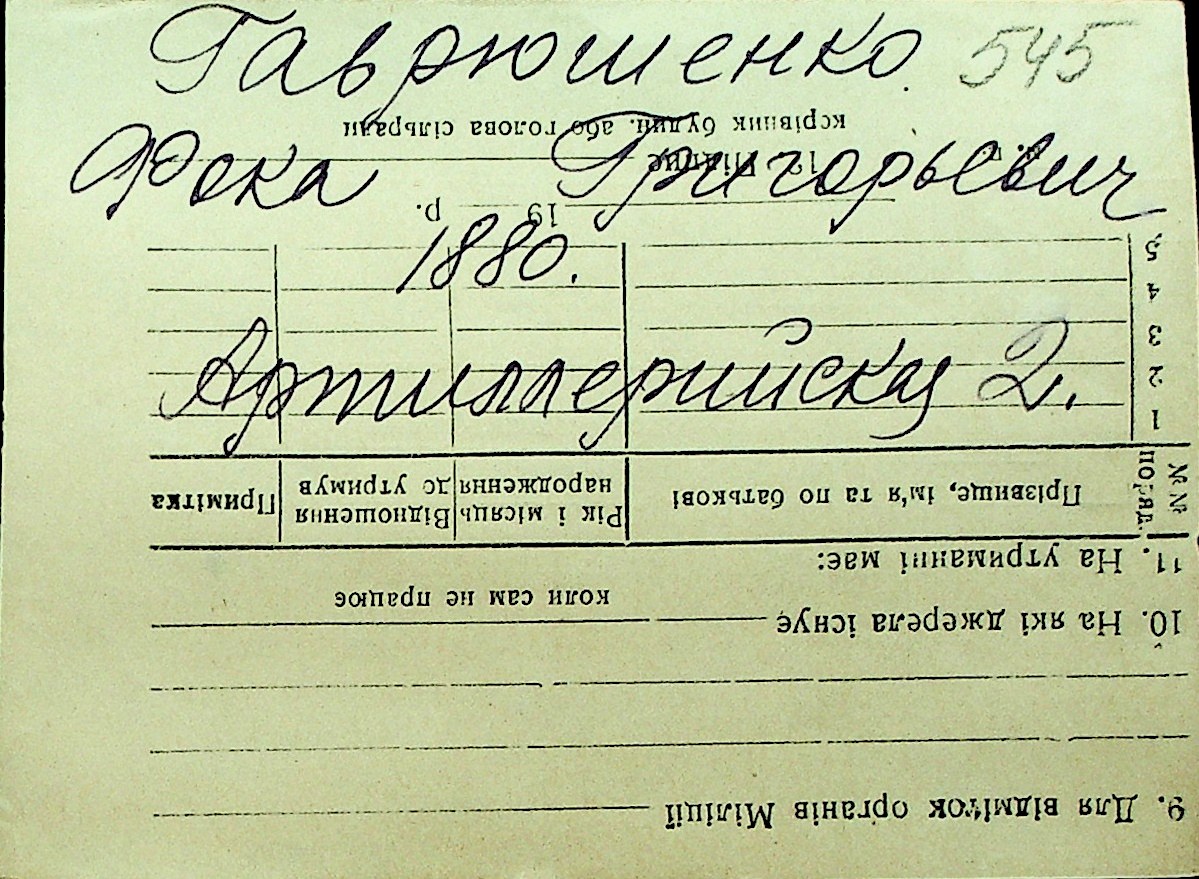 Гаврюшенко 545
Фока Григорьевич
1880.
Артиллерийская 2.
9. Для відміток органів Міліції
10. На які джерела існує
коли сам не працює
11. На утриманні має:
№№ по ряд. Прізвище, ім'я та по батькові Рік і місяць народження Відношення до утримув Примітка
1
2
3
4
5
19 р.
Підпис
керівник будин. або голова сільради